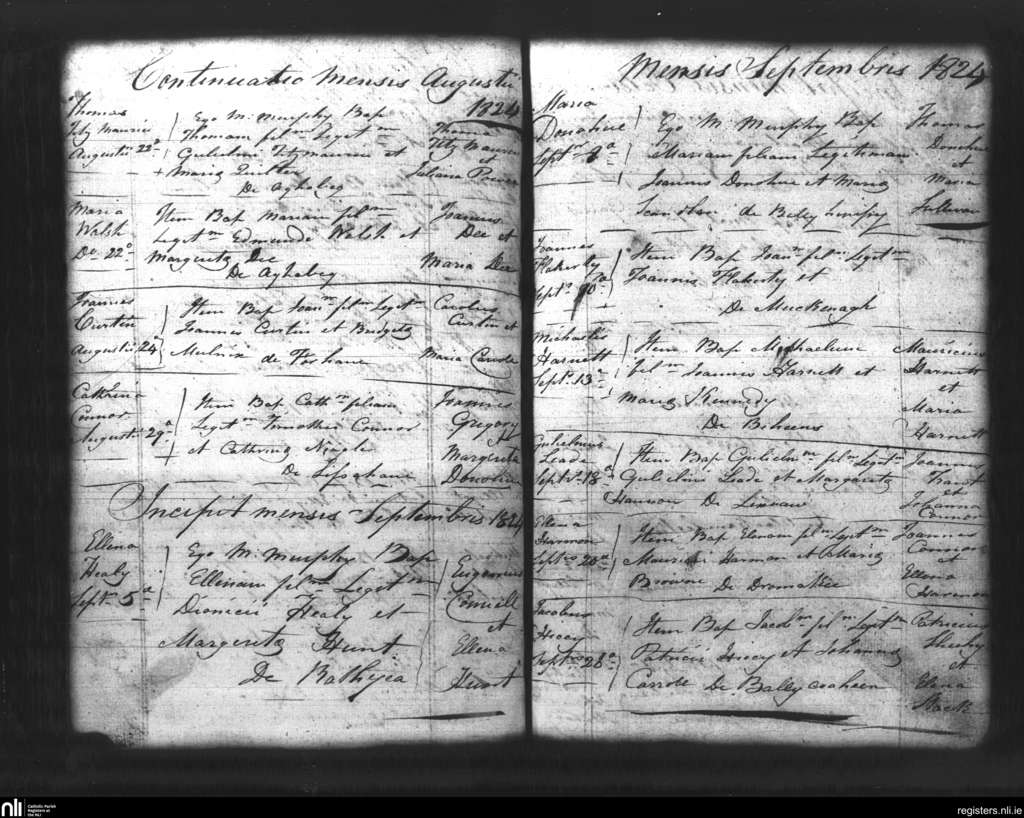 Continuatio Mensis Augusti
1824
Thomas
Fitz Maurice
Augusti 22ª
Ego M. Murphy Bap
Thomam film Legitm
Gulielmi Fitzmaurice et
Maria Quilter
De Aghebeg
Thomas
Fitz Maurice
et
Juliana Power
Maria
Walsh
Do 22º
Item Bap Mariam film
Legitm Edmundi Welsh et
Margerita Dee
De Aghebeg
Joannes
Dee et
Maria Dee
Joannes
Curtin
Augusti 24ª
Item Bap Joanm film Legitm
Joannis Curtin et Bridgita
de
Carolus
Curtin et
Maria Carroll
Cathrina
Connor
August 29ª
Item Bap Cathm filiam
Legitm Timothei Connor
et Cathrina
De Lissahane
Joannes
Gregory
Margerita
Donohue
Incipit mensis Septembris 1824
Ellena
Healy
Septr 5ª
Ego M. Murphy Bap
Ellenam film Legitm
Dionicii Healy et
Margerita Hunt
De Rathgea
Eugenius
Connell
et
Ellena
Hunt
Mensis Septembris 1824
Maria
Donohue
Septr 8ª
Ego M Murphy Bap
Mariam filiam Legitimam
Joannis Donohue et Maria
de
Thomas
Donohue
et
Maria
Sullivan
Joannes
Flaherty
Septr 10ª
Item Bap Joanm film Legitm
Joannis Flaherty et
De Muckenagh
Michaelis
Harnett
Septr 13ª
Item Bap Michaelem
film Joannis Harnett et
Maria Kennedy
De Beheens
Mauricius
Harnett
et
Maria
Harnett
Gulielmus
Leade
Septr 18ª
Item Bap Gulielmm film Legitm
Gulielmi Leade et Margarita
Hannon De
Joannes
et
Johanna
Connor
Ellena
Harmon
Septr 20ª
Item Bap Elenam film Legitm
Mauricii Harmon et Maria
Browne De
Joannes
Connor
et
Ellena
Harmon
Jacobus
Hicey
Septr 28ª
Item Bap Jacobm film Legitm
Patricii Hicey et Johanna
Carroll De Ballycoaheen
Patricius
Sheehy
et
Elena
Stack
nli
Catholic Parish
Registers at
the NLI
registers.nli.ie